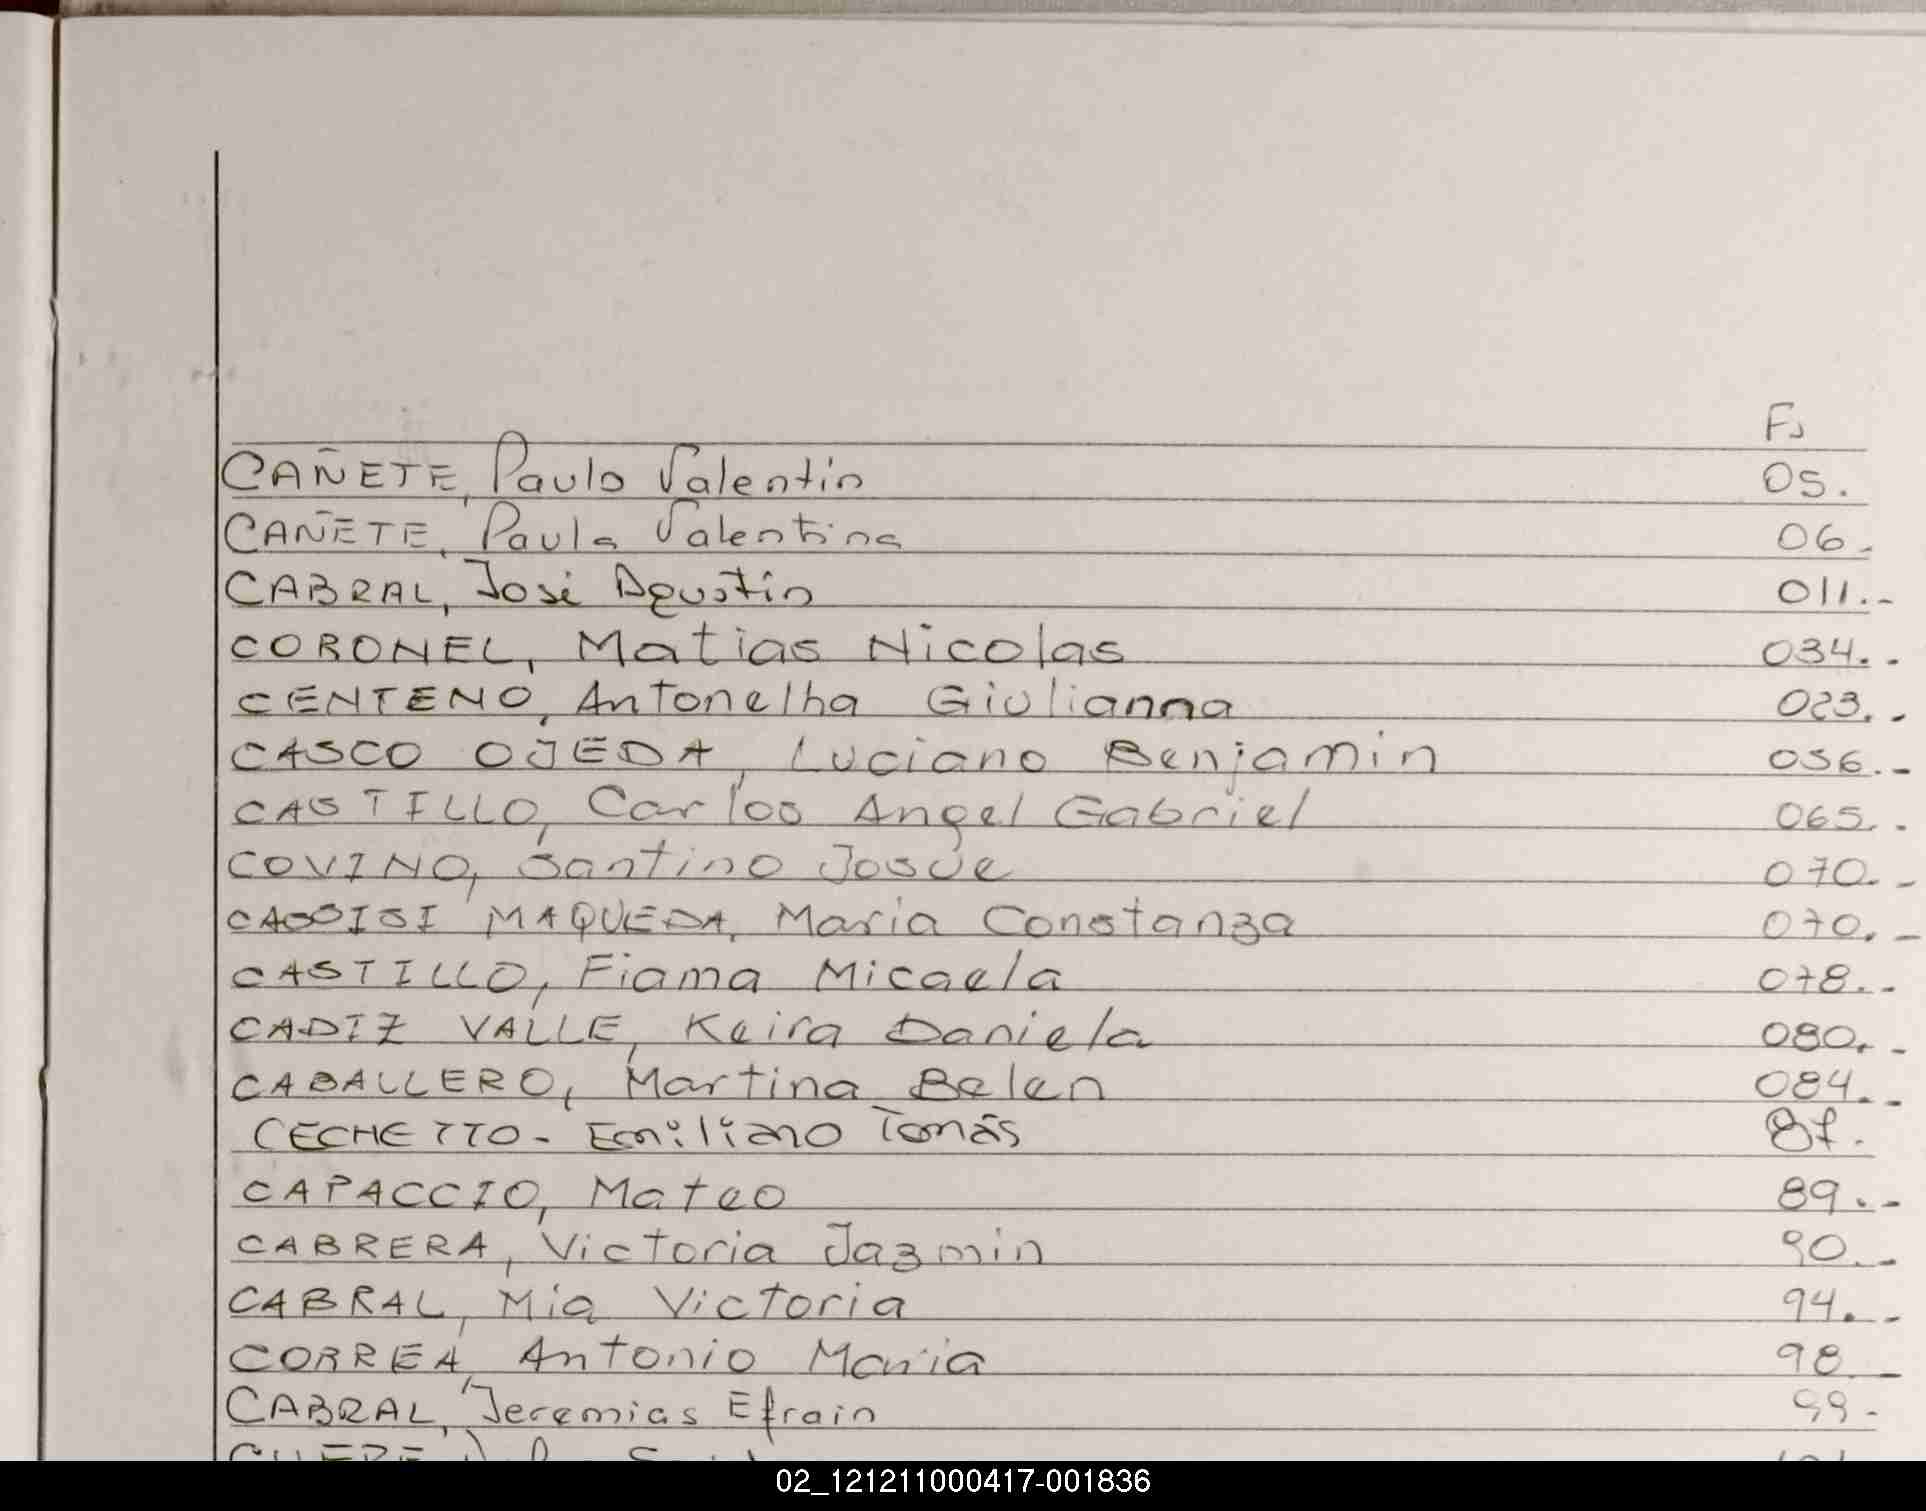 Fs
CAÑETE, Paulo Valentin 05.
CAÑETE, Paula Valentina 06.
CABRAL, José Agustín 011.-
CORONEL, Matias Nicolas 034.-
CENTENO, Antonelha Giulianna 023.-
CASCO OJEDA, Luciano Benjamin 056.-
CASTILLO, Carlos Angel Gabriel 065.-
COVINO, Santino Josue 070.-
CASSISI MAQUEDA, Maria Constanza 070.-
CASTILLO, Fiama Micaela 078.-
CADIZ VALLE, Keira Daniela 080.-
CABALLERO, Martina Belen 084.-
CECHETTO - Emiliano Tomás 87.
CAPACCIO, Mateo 89.-
CABRERA, Victoria Jazmin 90.-
CABRAL, Mia Victoria 94.-
CORREA, Antonio Maria 98.-
CABRAL, Jeremias Efrain 99.-
02_121211000417-001836